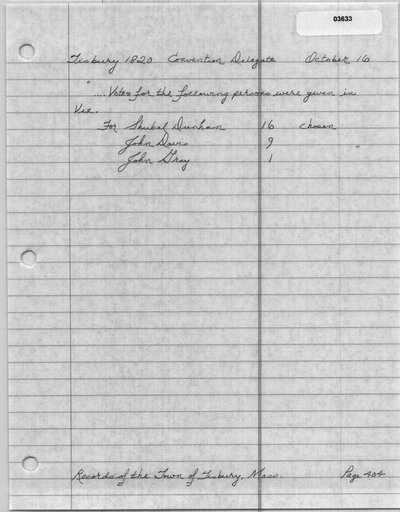 03633
Tisbury 1820 Convention Delegate October 16
" .... Votes for the following persons were given in
Viz.
For Shubal Dunham 16 chosen
John Davis 9 "
John Gray 1
Records of the Town of Tisbury, Mass. Page 404